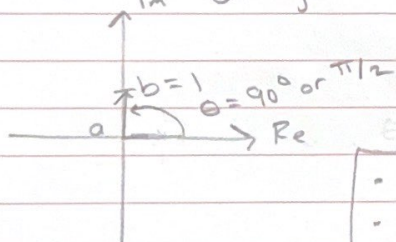 Im
b = 1
θ = 90° or π/2
a
Re